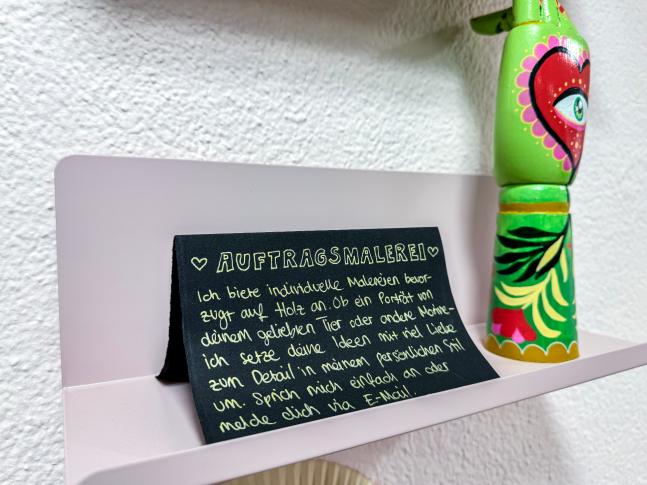 ♡ AUFTRAGSMALEREI ♡
Ich biete individuelle Malereien bevor-
zugt auf Holz an. Ob ein Porträt von
deinem geliebten Tier oder andere Motive-
ich setze deine Ideen mit viel Liebe
zum Detail in meinem persönlichen Stil
um. Sprich mich einfach an oder
melde dich via E-Mail.